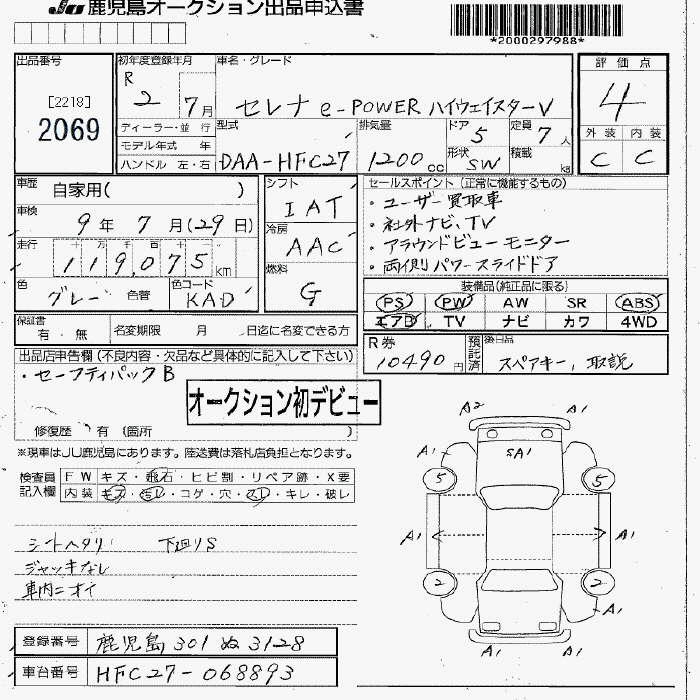 JU 鹿児島オークション出品申込書
*2000297988*
出品番号 初年度登録年月 車名・グレード 評価点
[2218] 2069
R 2 7月 セレナ e-POWER ハイウェイスターV 4
ディーラー・並行 型式 排気量 ドア 5 定員 7人 外装 内装
モデル年式 年 形状 SW 積載 kg C C
ハンドル 左・右 DAA-HFC27 1200cc
車歴 自家用( ) シフト IAT
車検 9年 7月(29日)
冷房 AAC
走行 十万千百十
119,075km
燃料 G
色 グレー 色替 色コード KAD
セールスポイント(正常に機能するもの)
・ユーザー買取車
・社外ナビ、TV
・アラウンドビューモニター
・両側パワースライドドア
装備品(純正品に限る)
PS PW AW SR ABS
エアB TV ナビ カワ 4WD
保証書 有・無 名変期限 月 日迄に名変できる方
R券 10490円 預託済 後日品 スペアキー、取説
出品店申告欄(不良内容・欠品など具体的に記入して下さい)
・セーフティパックB
オークション初デビュー
修復歴 有(箇所 )
※現車はJU鹿児島にあります。陸送費は落札店負担となります。
検査員記入欄 FW キズ・飛石・ヒビ割・リペア跡・X要
内装 キズ・・コゲ・穴・・キレ・破レ
シートヘタリ 下廻りS
ジャッキなし
車内ニオイ
A2 A1
A1 SA1 A1
5 5
A1 A1
2 2
A1
A1 A1
登録番号 鹿児島 301 ぬ 3128
車台番号 HFC27-068893